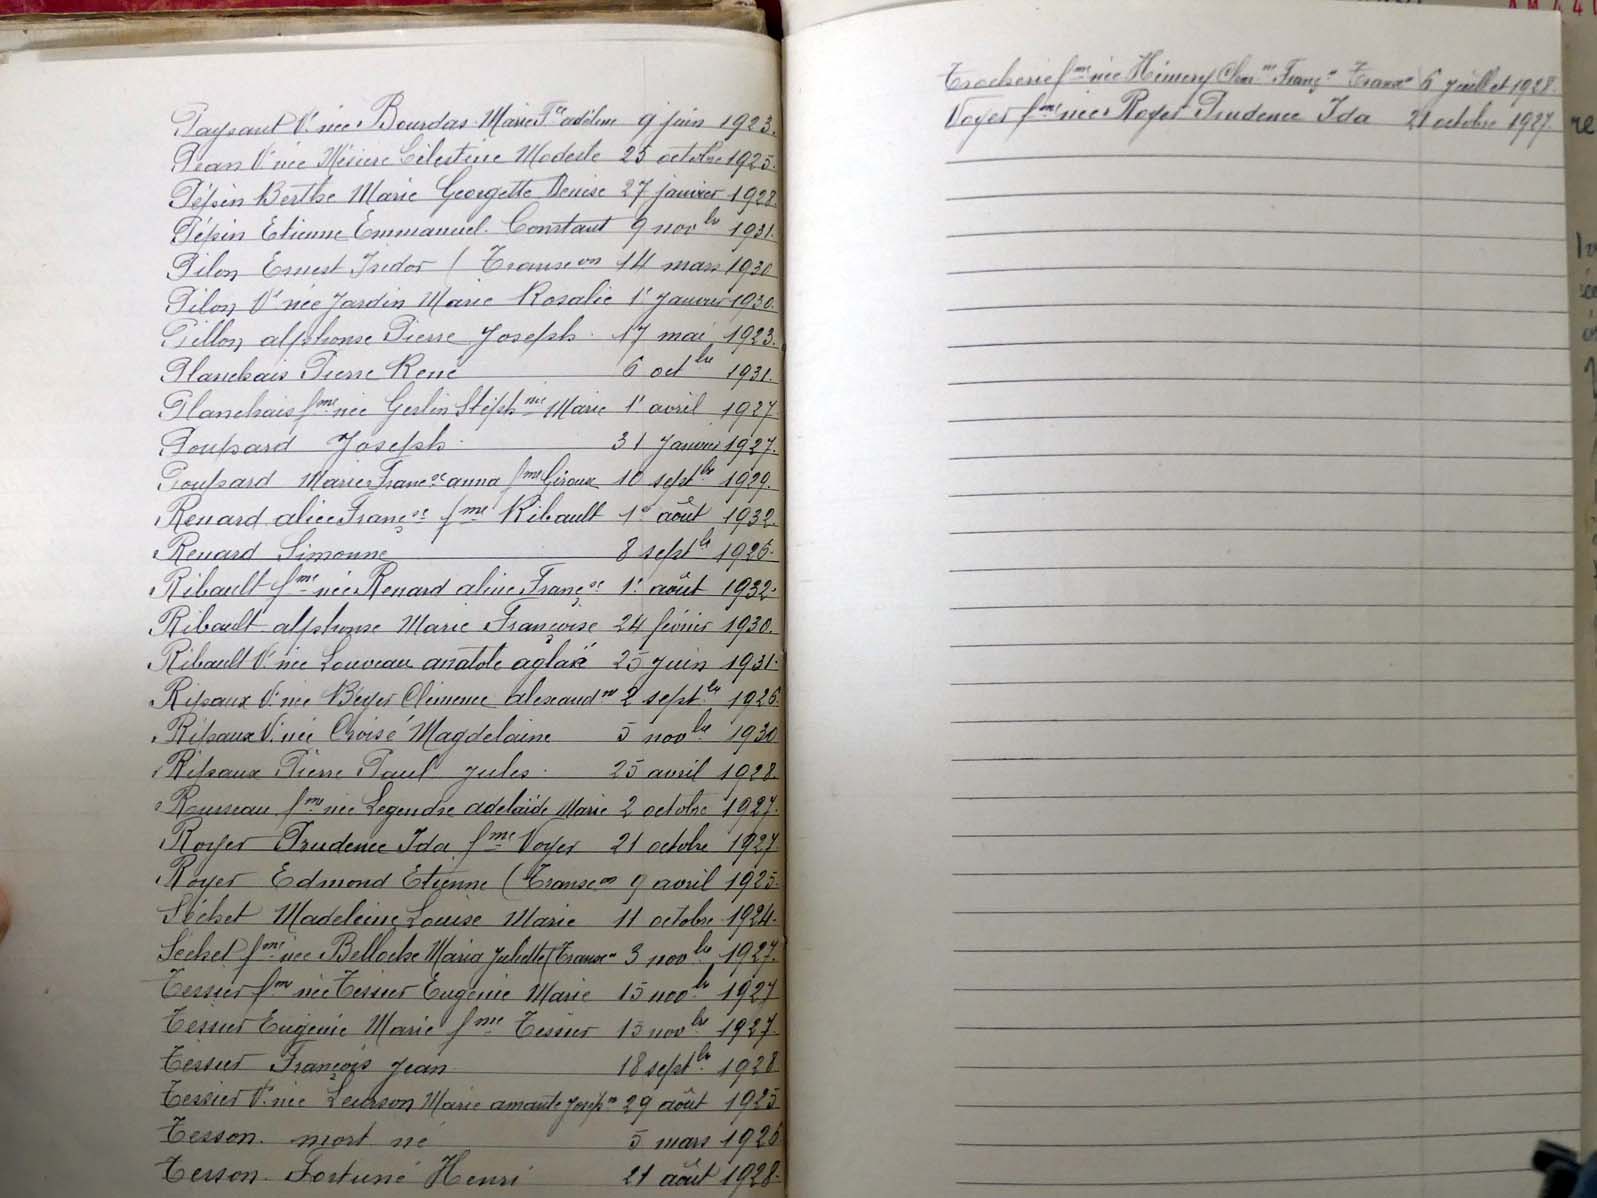 Paysant Ve née Bourdas Marie Fse adeline 9 juin 1923.
Péan Ve née Mésiere Célestine Modeste 25 octobre 1925.
Pépin Berthe Marie Georgette Denise 27 janvier 1928.
Pépin Etienne Emmanuel Constant 9 novbre 1931.
Pilon Ernest Isidor (Transcon 14 mars 1930
Pilon Ve née Jardin Marie Rosalie 1er Janvier 1930.
Pillon alphonse Pierre Joseph. 17 mai 1923.
Planchais Pierre René 6 octbre 1931.
Planchais fme née Geslin Stéphnie Marie 1er avril 1927.
Poupard Joseph. 31 Janvier 1927.
Poupard Marie Françse anna fme Giroux 10 septbre 1929.
Renard alice Françse fme Ribault 1er août 1932.
Renard Simonne 8 septbre 1926.
Ribault fme née Renard alice Françse 1er août 1932.
Ribault alphonse Marie Françoise 24 février 1930.
Ribault Ve née Louveau anatole aglaé 25 juin 1931.
Ripaux Ve née Beyer Clémence alexandre 2 septbre 1926.
Ripaux Ve née Croisé Magdelaine 5 novbre 1930
Ripaux Pierre Paul Jules. 25 avril 1928.
Rousseau fme née Legendre adelaïde Marie 2 octobre 1927.
Royer Prudence Ida fme Voyer 21 octobre 1927.
Royer Edmond Etienne (Transcon 9 avril 1925.
Séchet Madeleine Louise Marie 11 octobre 1924.
Séchet fme née Belloche Maria Juliette (Transcon 3 novbre 1927.
Tessier fme née Tessier Eugénie Marie 15 novbre 1927
Tessier Eugénie Marie fme Tessier 15 novbre 1927.
Tessier François Jean 18 septbre 1928
Tessier Ve née Leurson Marie amante Joséphne 29 août 1925
Tesson mort né 5 mars 1926
Tesson Fortuné Henri 21 août 1928.
Trocherie fme née Hémery Françse Transcon 6 juillet 1928.
Voyer fme née Royer Prudence Ida 21 octobre 1927.